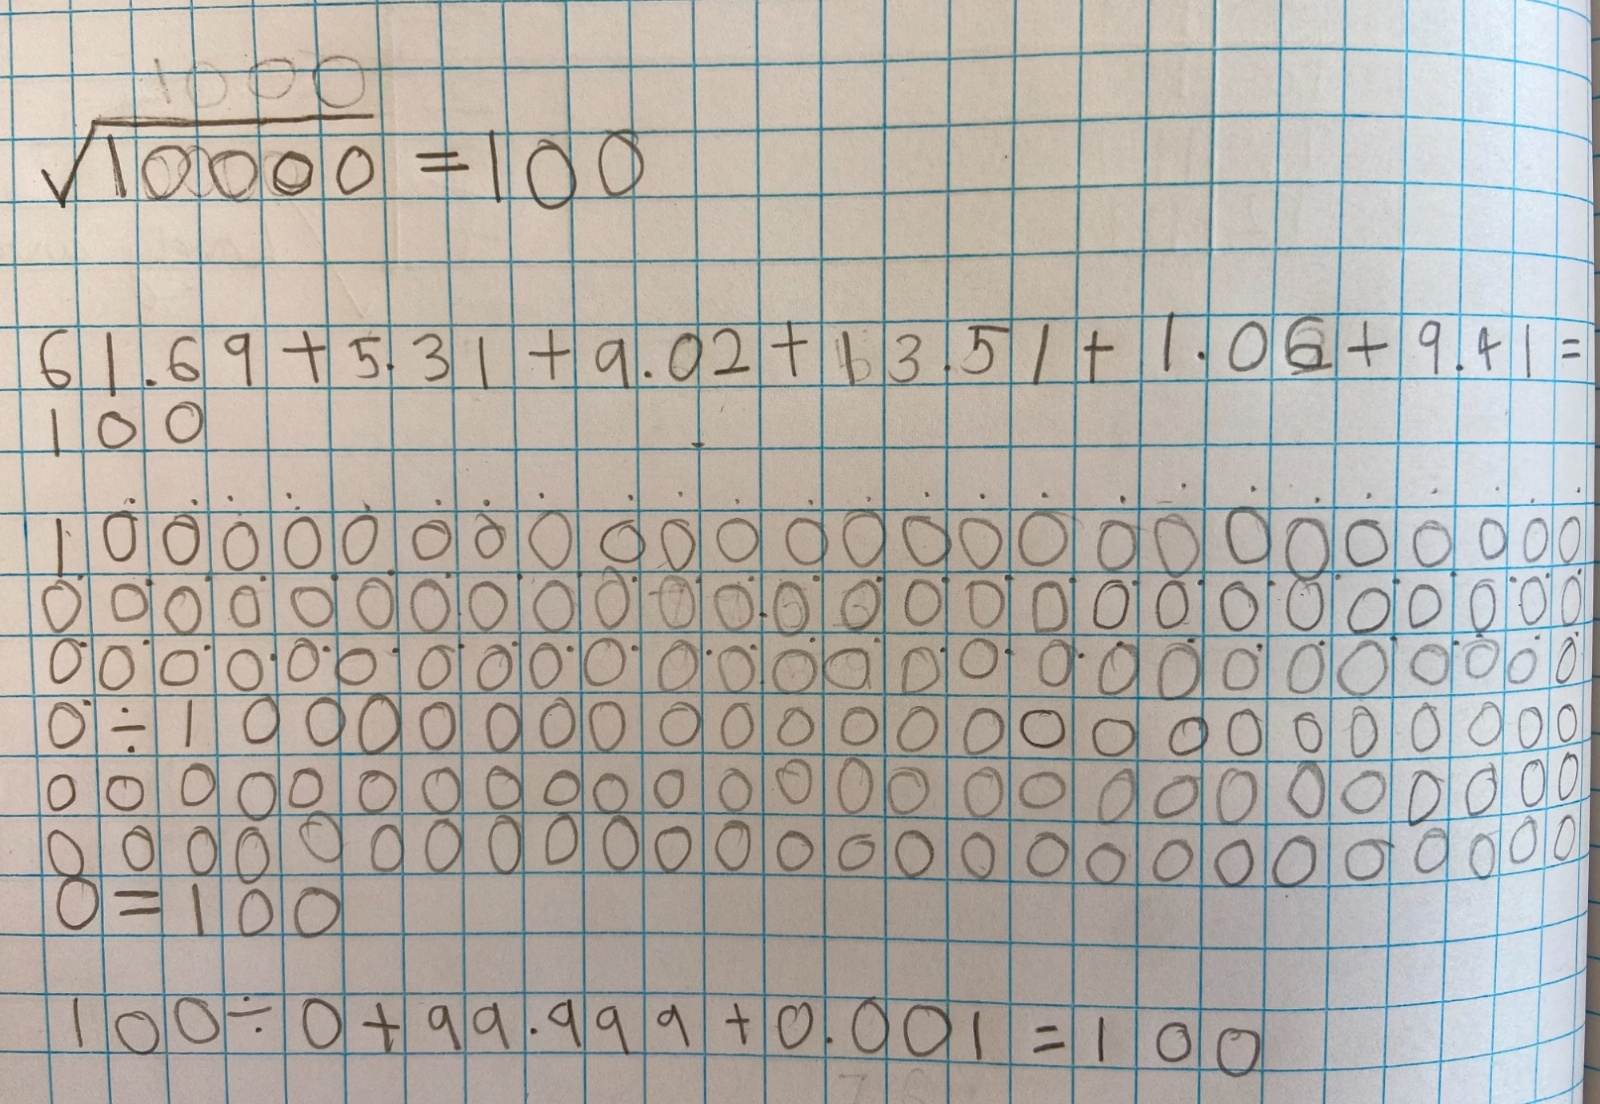 1000
√10000 = 100
61.69 + 5.31 + 9.02 + 13.51 + 1.06 + 9.41 =
100
10000000000000000000000000
00000000000000000000000000
00000000000000000000000000
0 ÷ 100000000000000000000000
00000000000000000000000000
00000000000000000000000000
0 = 100
100 ÷ 0 + 99.999 + 0.001 = 100